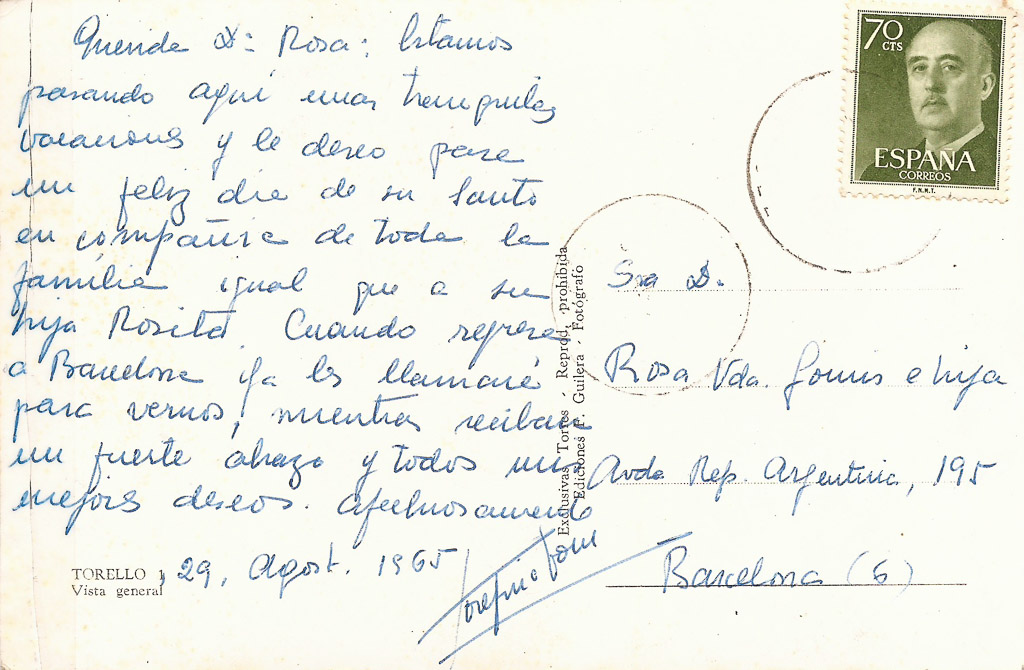 Querida Dª Rosa: Estamos
pasando aquí unas tranquilas
vacaciones y le deseo pase
un feliz dia de su Santo
en compañia de toda la
família igual que a su
hija Rosita. Cuando regrese
a Barcelona ya les llamaré
para vernos, mientras reciban
un fuerte abrazo y todos mis
mejores deseos. Afectuosamente
29, Agost. 1965
TORELLO 1
Vista general
Exclusivas Torres - Reprod. prohibida
Ediciones F. Guilera - Fotógrafo
70 CTS
ESPAÑA
CORREOS
F.N.M.T.
Sra D.
Rosa Vda. Gomis e hija
Avda Rep. Argentina, 195
Barcelona (6)